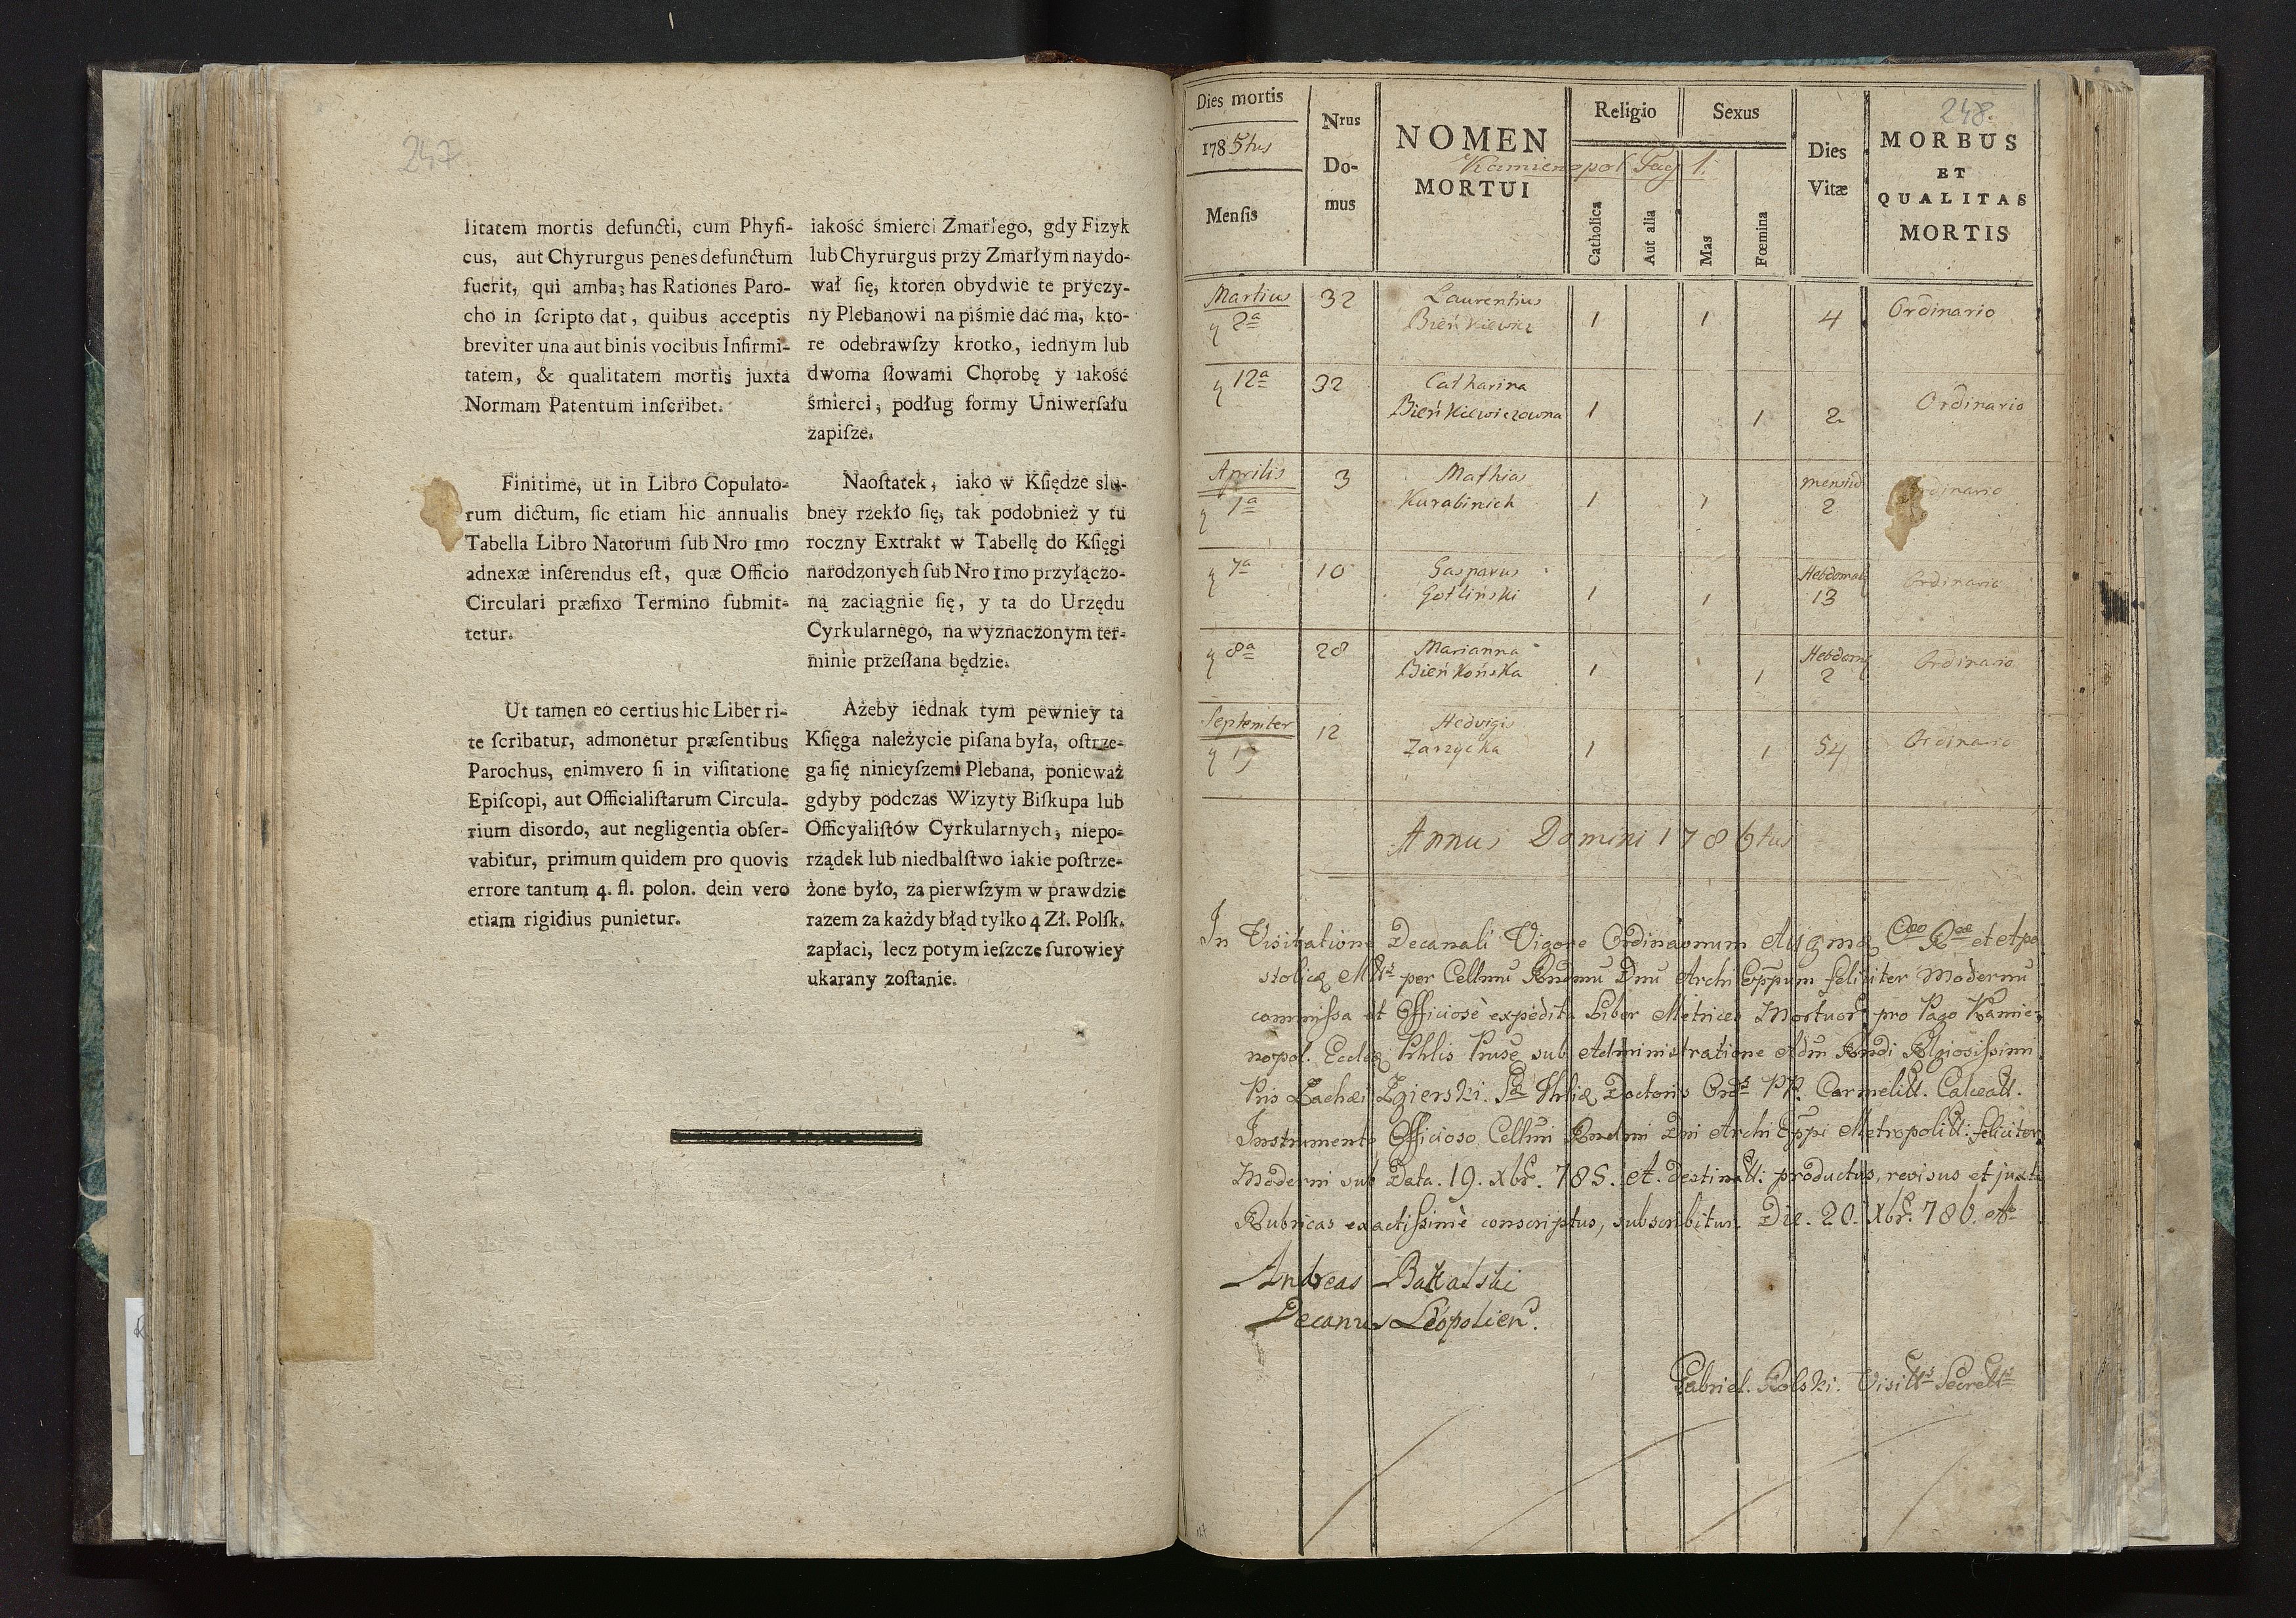 247
litatem mortis defuncti, cum Phyſi-
cus, aut Chyrurgus penes defunctum
fuerit, qui ambas has Rationes Paro-
cho in ſcripto dat, quibus acceptis
breviter una aut binis vocibus Infirmi-
tatem, & qualitatem mortis juxta
Normam Patentum inſcribet.
Finitime, ut in Libro Copulato-
rum dictum, ſic etiam hic annualis
Tabella Libro Natorum ſub Nro 1mo
adnexæ inſerendus eſt, quæ Officio
Circulari præfixo Termino ſubmit-
tetur.
Ut tamen eo certius hic Liber ri-
te ſcribatur, admonetur præſentibus
Parochus, enimvero ſi in viſitatione
Epiſcopi, aut Officialiſtarum Circula-
rium disordo, aut negligentia obſer-
vabitur, primum quidem pro quovis
errore tantum 4. fl. polon. dein vero
etiam rigidius punietur.
iakość śmierci Zmarłego, gdy Fizyk
lub Chyrurgus przy Zmarłym naydo-
wał ſię, ktoren obydwie te pryczy-
ny Plebanowi na piśmie dać ma, kto-
re odebrawſzy krotko, iednym lub
dwoma ſłowami Chorobę y iakość
śmierci, podług formy Uniwerſału
zapiſze.
Naoſtatek, iako w Kſiędze slu-
bney rzekło ſię, tak podobnież y tu
roczny Extrakt w Tabellę do Kſięgi
narodzonych ſub Nro 1mo przyłączo-
ną zaciągnie ſię, y ta do Urzędu
Cyrkularnego, na wyznaczonym ter-
minie przeſłana będzie.
Ażeby iednak tym pewniey ta
Kſięga należycie piſana była, oſtrze-
ga ſię ninieyſzemi Plebana, ponieważ
gdyby podczas Wizyty Biſkupa lub
Officyaliſtów Cyrkularnych, niepo-
rządek lub niedbalſtwo iakie poſtrze-
żone było, za pierwſzym w prawdzie
razem za każdy błąd tylko 4 Zł. Polſk.
zapłaci, lecz potym ieſzcze ſurowiey
ukarany zoſtanie.
248.
Dies mortis
1785tus
Menſis
Nrus
Do-
mus
NOMEN
MORTUI
Kamienopol Pag 1.
Religio
Catholica
Aut alia
Sexus
Mas
Fœmina
Dies
Vitæ
MORBUS
ET
QUALITAS
MORTIS
Martius 32 Laurentius Ordinario
2a Bieńkiewicz 1 1 4
12a 32 Catharina Ordinario
Bieńkiewiczowna 1 1 2
Aprilis 3 Mathias Ordinario
1a Kurabinich 1 1 2
7a 10 Gasparus Ordinario
Gotliński 1 1 13
8a 28 Marianna Ordinario
Bieńkońska 1 1 2
September 12 Hedvigis Ordinario
19 Zarzycka 1 1 54
Annus Domini 1786tus
In Visitatione Decanali Vigore Ordinaonum et Apo
stolicæ per Cellmu Rndmu Dnu Archi Eppum feliciter Modernu
commissa et Officiosè expedita Liber Metrices Mortuor. pro Pago Kamie-
nopol. Ecclæ sub Administratione Adm Rndi Rlgiosissimi
Pris Zachæi Zgierski. Doctoris Ord. PP. Carmelitt. Calceatt.
Instrumento Officioso Cellmi Rndmi Dni Archi Eppi Metropolitt: feliciter
Moderni sub Data. 19. xbr. 785. A. destinatt: productus, revisus et juxta
Rubricas exactissimè conscriptus, subscribitur. Die. 20. Xbr. 786. Ao
Andreas Bakalski
Decanus Leopolien.
Gabriel. Rolski. Secrett